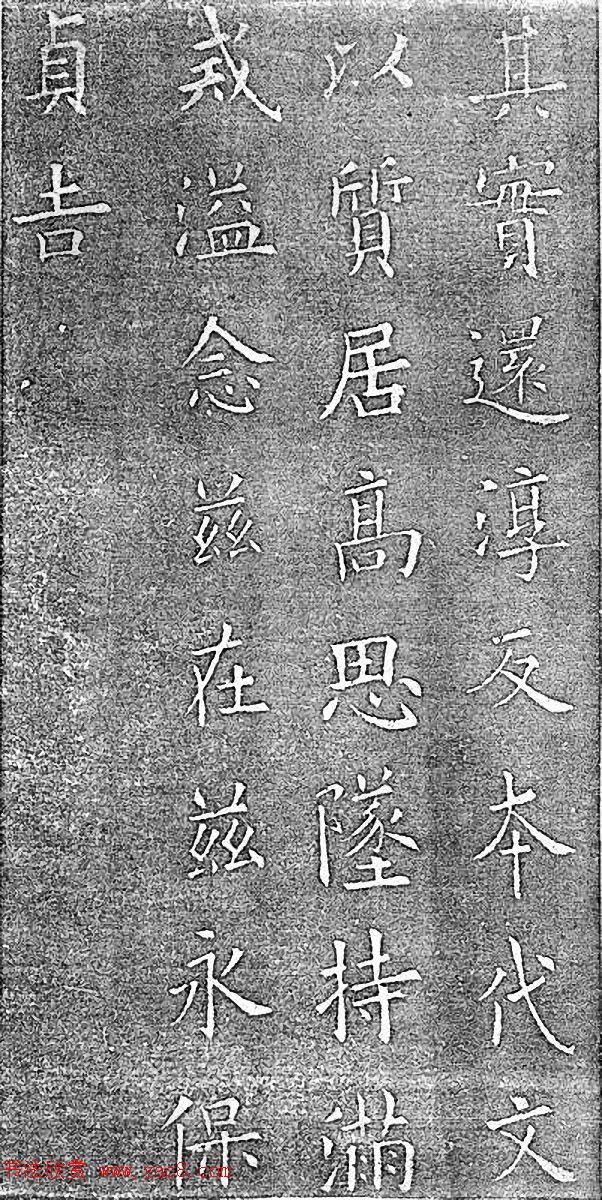 其實還淳反本代文
以質居高思墜持滿
戒溢念茲在茲永保
貞吉
书法欣赏 www.yac8.com